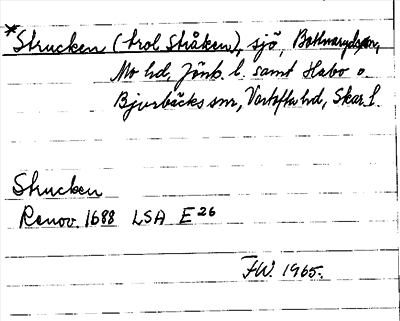 *Strucken (trol Stråken), sjö, Bottnaryds sn,
Mo hd, Jönk. l. samt Habo o.
Bjurbäcks snr, Vartofta hd, Skar. l.
Strucken
Renov. 1688 LSA E 26
FW. 1965.